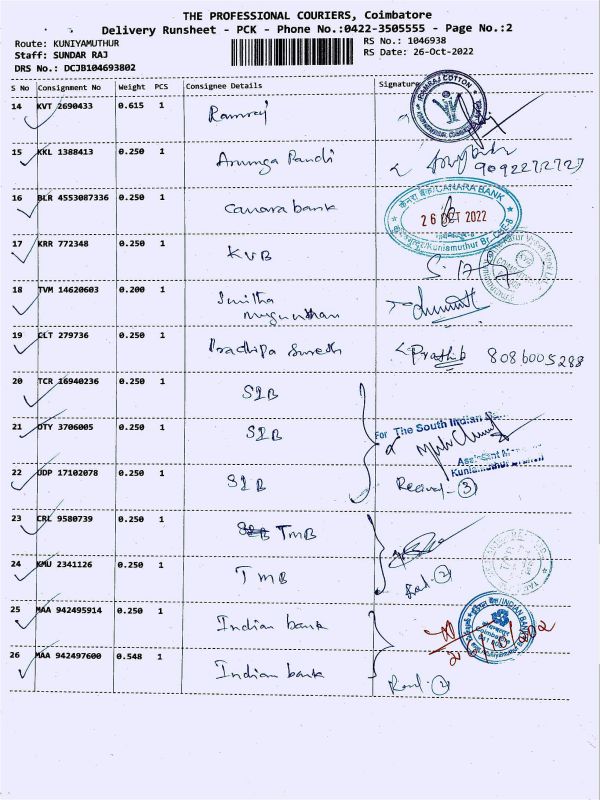 THE PROFESSIONAL COURIERS, Coimbatore
Delivery Runsheet - PCK - Phone No.:0422-3505555 - Page No.:2
Route: KUNIYAMUTHUR
RS No.: 1046938
Staff: SUNDAR RAJ
RS Date: 26-Oct-2022
DRS No.: DCJB104693802
S No Consignment No Weight PCS Consignee Details Signature
14 KVT 2690433 0.615 1 Ramraj
RAMRAJ COTTON
15 KKL 1388413 0.250 1 Arumga Pandi
9092272727
16 BLR 4553087336 0.250 1 Canara bank
CANARA BANK
26 OCT 2022
Kuniamuthur Br
17 KRR 772348 0.250 1 KVB
18 TVM 14620603 0.200 1 Sunitha
mugundhan
19 CLT 279736 0.250 1 Pradhipa Suresh
Prathib 8086005288
20 TCR 16940236 0.250 1 SIB
21 OTY 3706005 0.250 1 SIB
For The South Indian
Assistant
Kuniamuthur
22 UDP 17102078 0.250 1 SIB
Received - 3
23 CRL 9580739 0.250 1 TMB
24 KMU 2341126 0.250 1 TMB
2
25 MAA 942495914 0.250 1 Indian bank
INDIAN BANK
26 MAA 942497600 0.548 1 Indian bank